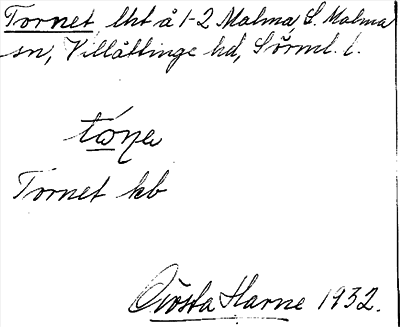 Tornet lht å 1-2 Malma, L. Malma
sn, Villåttinge hd, Sörml. l.
Tornet kb
Gösta Harne 1932.